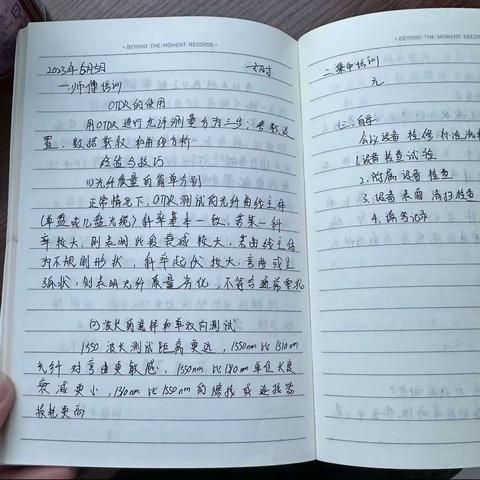 BEYOND THE MOMENT RECORDS
2023年5月5日
一.师傅培训
OTDR的使用
用OTDR进行光纤测量分为三步:参数设
置、数据获取和曲线分析
经验与技巧
(1)光纤质量的简单分别
正常情况下,OTDR测试的光纤曲线主体
(单盘或几盘光缆)斜率基本一致,若某一斜
率较大,则表明此段衰减较大,若曲线主体
为不规则形状,斜率起伏较大,弯曲或呈
弧状,则表明光纤质量劣化,不符合通信要求
(2)波长的选择和单双向测试
1550波长测试距离更远,1550nm比1310nm
光纤对弯曲更敏感,1550nm比1310nm单位长度
衰减更小,1310nm比1550nm的熔接或连接器
损耗更高
BEYOND THE MOMENT RECORDS
二.集中培训
无
三.自学
会议设备检修标准流程
1.设备检查试验
2.附属设备检查
3.设备表面清扫检查
4.填写记录